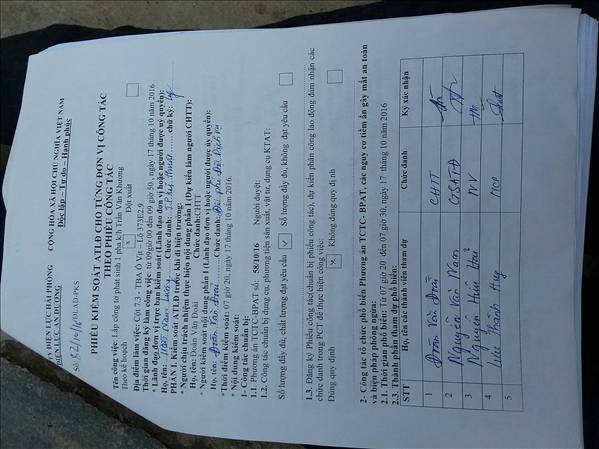 TY ĐIỆN LỰC HẢI PHÒNG
ĐIỆN LỰC AN DƯƠNG
CỘNG HÒA XÃ HỘI CHỦ NGHĨA VIỆT NAM
Độc lập – Tự do – Hạnh phúc
ĐLAD-PKS
PHIẾU KIỂM SOÁT ATLĐ CHO TỪNG ĐƠN VỊ CÔNG TÁC
THEO PHIẾU CÔNG TÁC
Tên công việc: Lắp công tơ phát sinh 1 pha k/h Trần Văn Khương
Theo kế hoạch x Đột xuất
Địa điểm làm việc: Cột 7.3 - TBA Ó Vịt – Lộ 373E2.9
Thời gian đăng ký làm công việc: từ 09giờ 00 đến 09 giờ 50, ngày 17 tháng 10 năm 2016
* Lãnh đạo đơn vị trực ban kiểm soát (Lãnh đạo đơn vị hoặc người được ủy quyền):
Họ, tên: Chức danh: chữ ký:
PHẦN I. Kiểm soát ATLĐ trước khi đi hiện trường:
* Người chịu trách nhiệm thực hiện nội dung phần I (Dự kiến làm người CHTT):
Họ, tên: Đoàn Văn Đoài Chức danh:CHTT
* Người kiểm soát nội dung phần I (Lãnh đạo đơn vị hoặc người được ủy quyền):
Họ, tên: Chức danh:
*Thời điểm kiểm soát: 07 giờ 20, ngày 17 tháng 10 năm 2016.
* Nội dung kiểm soát:
1- Công tác chuẩn bị:
1.1 Phương án TCTC-BPAT số: 58/10/16 Người duyệt:
1.2. Công tác chuẩn bị dụng cụ, phương tiện sản xuất, vật tư, dụng cụ KTAT:
Số lượng đầy đủ, chất lượng đạt yêu cầu v Số lượng đầy đủ, không đạt yêu cầu
1.3. Đăng ký Phiếu công tác(chuẩn bị phiếu công tác), dự kiến phân công lao động đảm nhận các
chức danh trong PCT để thực hiện công việc:
Đúng quy định x Không đúng quy định
2- Công tác tổ chức phổ biến Phương án TCTC- BPAT, các nguy cơ tiềm ẩn gây mất an toàn
và biện pháp phòng ngừa:
2.1. Thời gian phổ biến: Từ 07 giờ 20 đến 07 giờ 30, ngày 17 tháng 10 năm 2016
2.3. Thành phần tham dự phổ biến:
STT Họ, tên các thành viên tham dự Chức danh Ký xác nhận
1 Đoàn Văn Đoài CHTT
2 Nguyễn Văn Nam GSATĐ
3 Nguyễn Hữu NV
4 Lưu Thành Huy
5